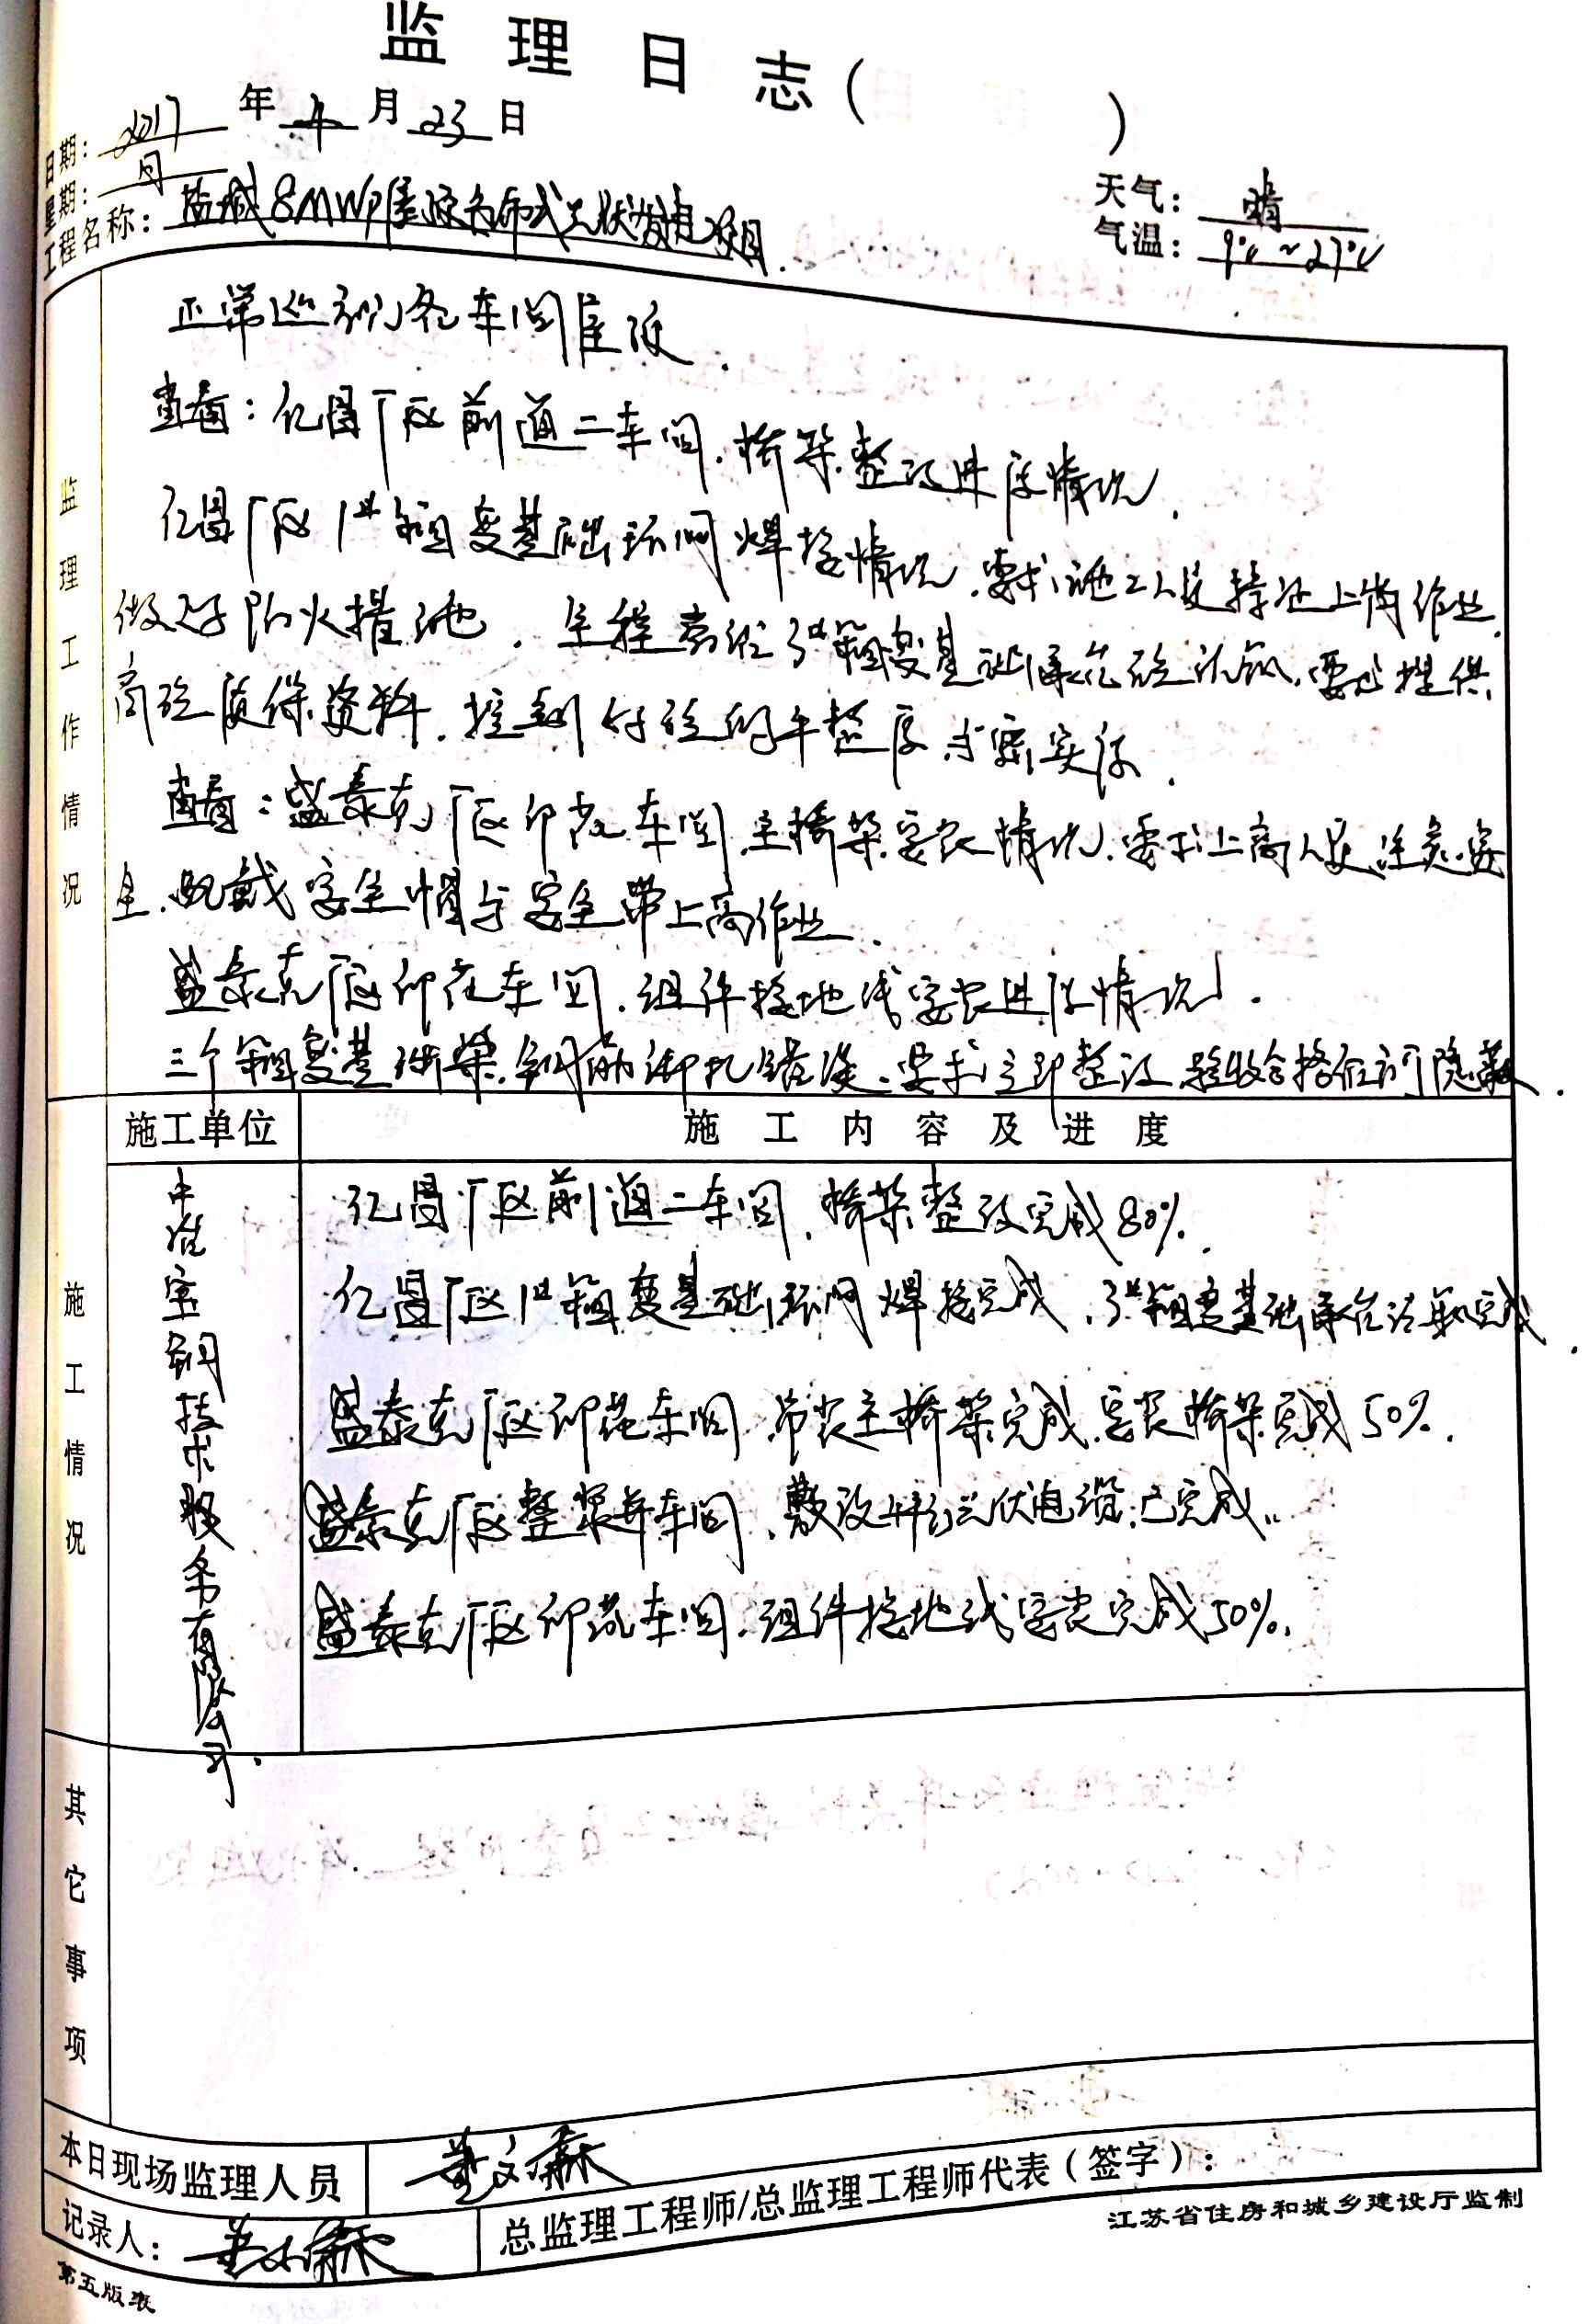 监理日志( )
日期: 2017 年 4 月 23 日
星期: 日
天气: 晴
工程名称: 盐城8MWP屋顶分布式光伏发电项目.
气温: 9℃~27℃
监理工作情况
正常巡视各车间屋顶.
查看:亿昌厂区前道二车间.桥架整改进度情况.
亿昌厂区1#箱变基础环网焊接情况.要求施工人员持证上岗作业.
做好防火措施.全程旁站3#箱变基础承台砼浇筑.要求提供
商砼质保资料.控制好砼的平整度与密实度.
查看:盛泰克厂区印花车间.主桥架安装情况.要求上高人员注意安
全.佩戴安全帽与安全带上高作业.
盛泰克厂区印花车间.组件接地线安装进度情况.
三个箱变基础梁.钢筋绑扎错误.要求立即整改.验收合格后方可隐蔽.
施工单位
施工内容及进度
施工情况
中 宝钢技术服务有限公司.
亿昌厂区前道二车间.桥架整改完成80%.
亿昌厂区1#箱变基础环网焊接完成.3#箱变基础承台浇筑完成.
盛泰克厂区印花车间.吊装主桥架完成.安装桥架完成50%.
盛泰克厂区整浆并车间.敷设 光伏电缆.已完成.
盛泰克厂区印花车间.组件接地线安装完成50%.
其它事项
本日现场监理人员
总监理工程师/总监理工程师代表(签字):
记录人:
江苏省住房和城乡建设厅监制
第五版表